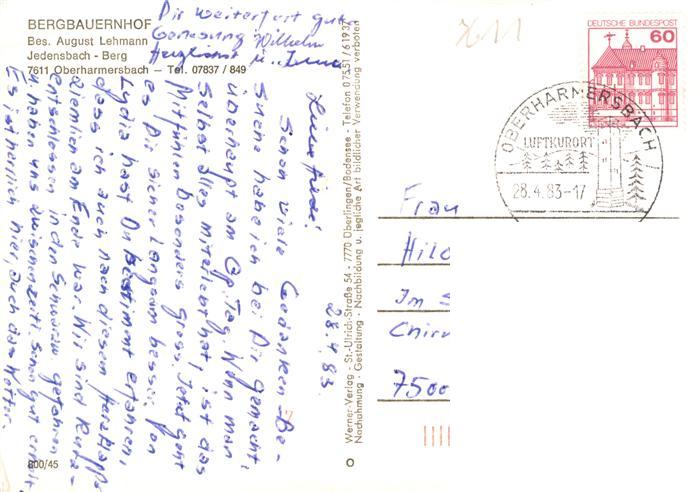 BERGBAUERNHOF
Bes. August Lehmann
Jedensbach - Berg
7611 Oberharmersbach — Tel. 07837 / 849
Dir weiterhin gute
Genesung Wilhelm
Herzlichst
28.4.83.
Liebe
Schon viele Gedanken Be-
suche habe ich bei Dir gemacht,
überhaupt am Op. Tag. Wenn man
selbst alles miterlebt hat, ist das
Mitfühlen besonders gross. Jetzt geht
es Dir sicher langsam besser. Von
Lydia hast Du bestimmt erfahren,
dass ich auch nach diesem
ziemlich am Ende war. Wir sind kurz
entschlossen in den Schwarzw. gefahren
u. haben uns zwischenzeitl. schon gut erholt.
Es ist herrlich hier, auch das Wetter.
800/45
Werner-Verlag - St.-Ulrich-Straße 54 - 7770 Überlingen/Bodensee - Telefon 07551/61937
Nachahmung - Gestaltung - Nachbildung u. jegliche Art bildlicher Verwendung verboten
7611
DEUTSCHE BUNDESPOST
60
OBERHARMERSBACH
LUFTKURORT
28.4.83-17
Frau
Im
7500